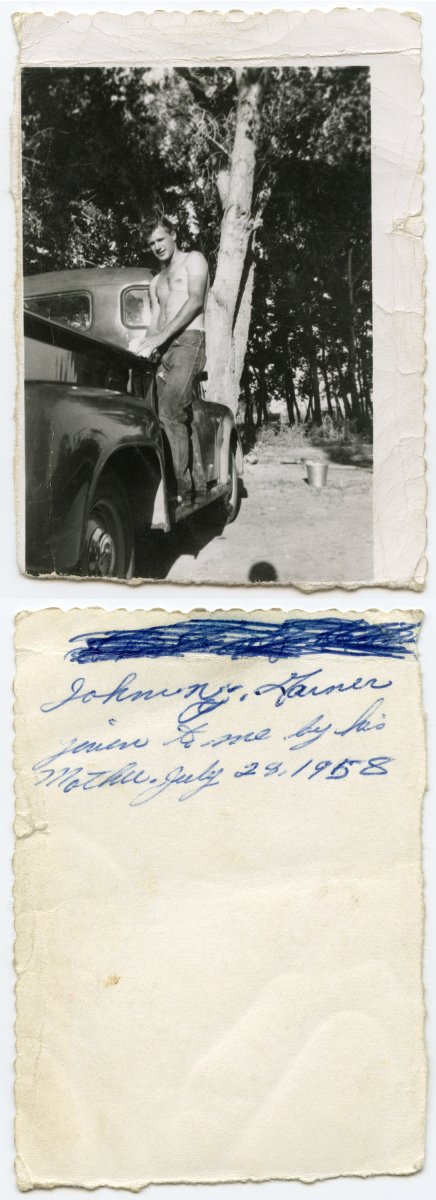 Johnny. Garner
given to me by his
Mother. July 28. 1958